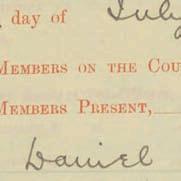 day of July
Members on the Cou
Members Present,
Daniel